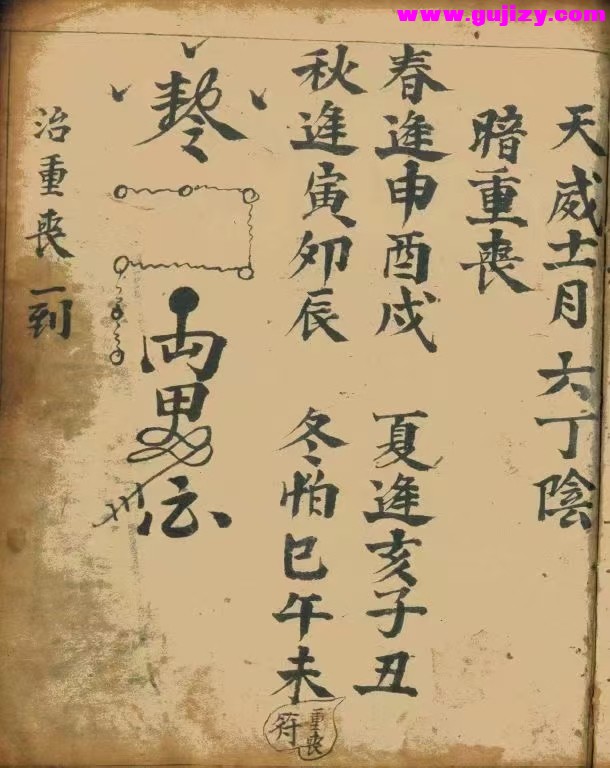 www.gujizy.com
天威士月 六丁陰
暗重喪
春逢申酉戍 夏逢亥子丑
秋逢寅夘辰 冬怕巳午未
重喪
符
治重喪一到